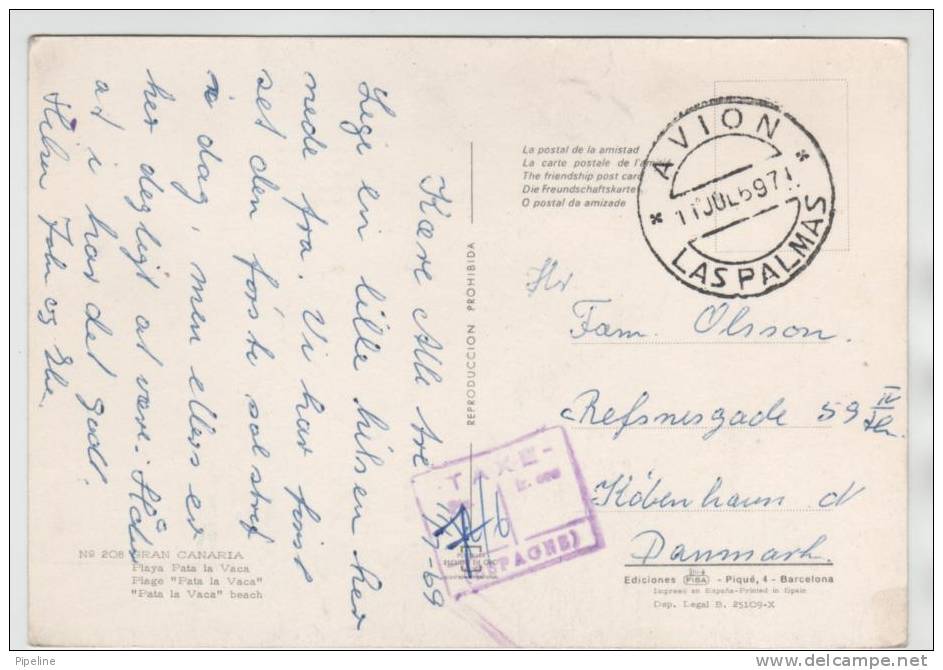 Kære Alle tre 11/7-69
Lige en lille hilsen her
nede fra. Vi har først
set den første solstrif
i dag, men ellers er
her dejligt at være. Håber
at i har det godt.
Hilsen John og Else.
La postal de la amistad
La carte postale de l'amitié
The friendship post card
Die Freundschaftskarte
O postal da amizade
AVION
11 JUL 6971
LAS PALMAS
REPRODUCCION PROHIBIDA
Hr
Fam. Olsson.
Refsnesgade 59 IV
København N
Danmark.
TAXE
(ESPAGNE)
Nº 208 GRAN CANARIA
Playa Pata la Vaca
Plage "Pata la Vaca"
"Pata la Vaca" beach
Ediciones FISA - Piqué, 4 - Barcelona
Impreso en España-Printed in Spain
Dep. Legal B. 25109-X
Pipeline
www.delcampe.net